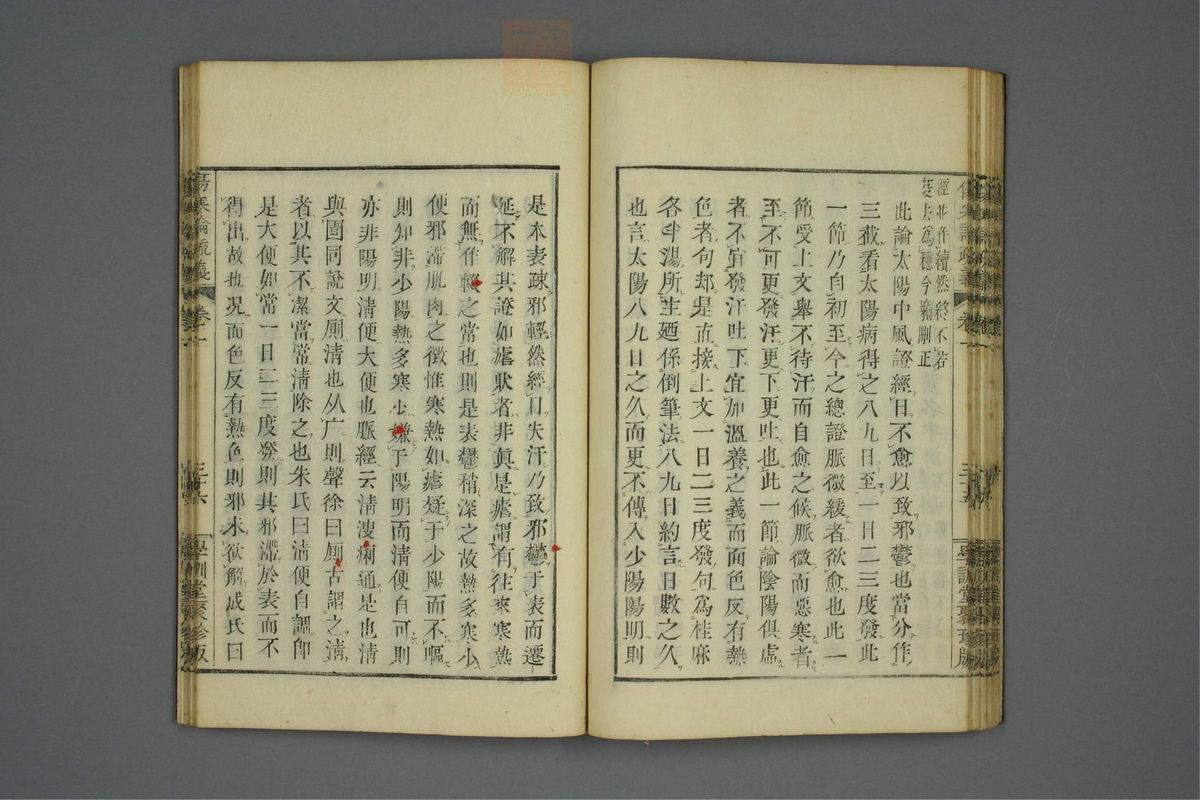 經並作續然終不若
失爲穩今竊刪正
此論太陽中風證經日不愈以致邪鬱也當分作
三截看太陽病得之八九日至一日二三度發此
一節乃自初至今之總證脈微緩者欲愈也此一
節受上文舉不待汗而自愈之候脈微而惡寒者
至不可更發汗更下更吐也此一節論陰陽俱虛
者不宜發汗吐下宜加溫養之義而面色反有熱
色者句却是直接上文一日二三度發句爲桂麻
各半湯所生廼係倒筆法八九日約言日數之久
也言太陽八九日之久而更不傳入少陽陽明則
是本表疎邪輕然經日失汗乃致邪鬱于表而遷
延不解其證如瘧狀者非眞是瘧謂有往來寒熱
而無作輟之常也則是表鬱稍深之故熱多寒少
便邪滯肌肉之徵惟寒熱如瘧疑于少陽而不嘔
則知非少陽熱多寒少嫌于陽明而清便自可則
亦非陽明清便大便也脈經云清溲痢通是也清
與圊同說文廁清也从广則聲徐曰廁古謂之清
者以其不潔當常清除之也朱氏曰清便自調卽
是大便如常一日二三度發則其邪滯於表而不
得出故也況面色反有熱色則邪未欲解成氏曰
傷寒論疏義
卷一
三十六
學訓堂聚珍版